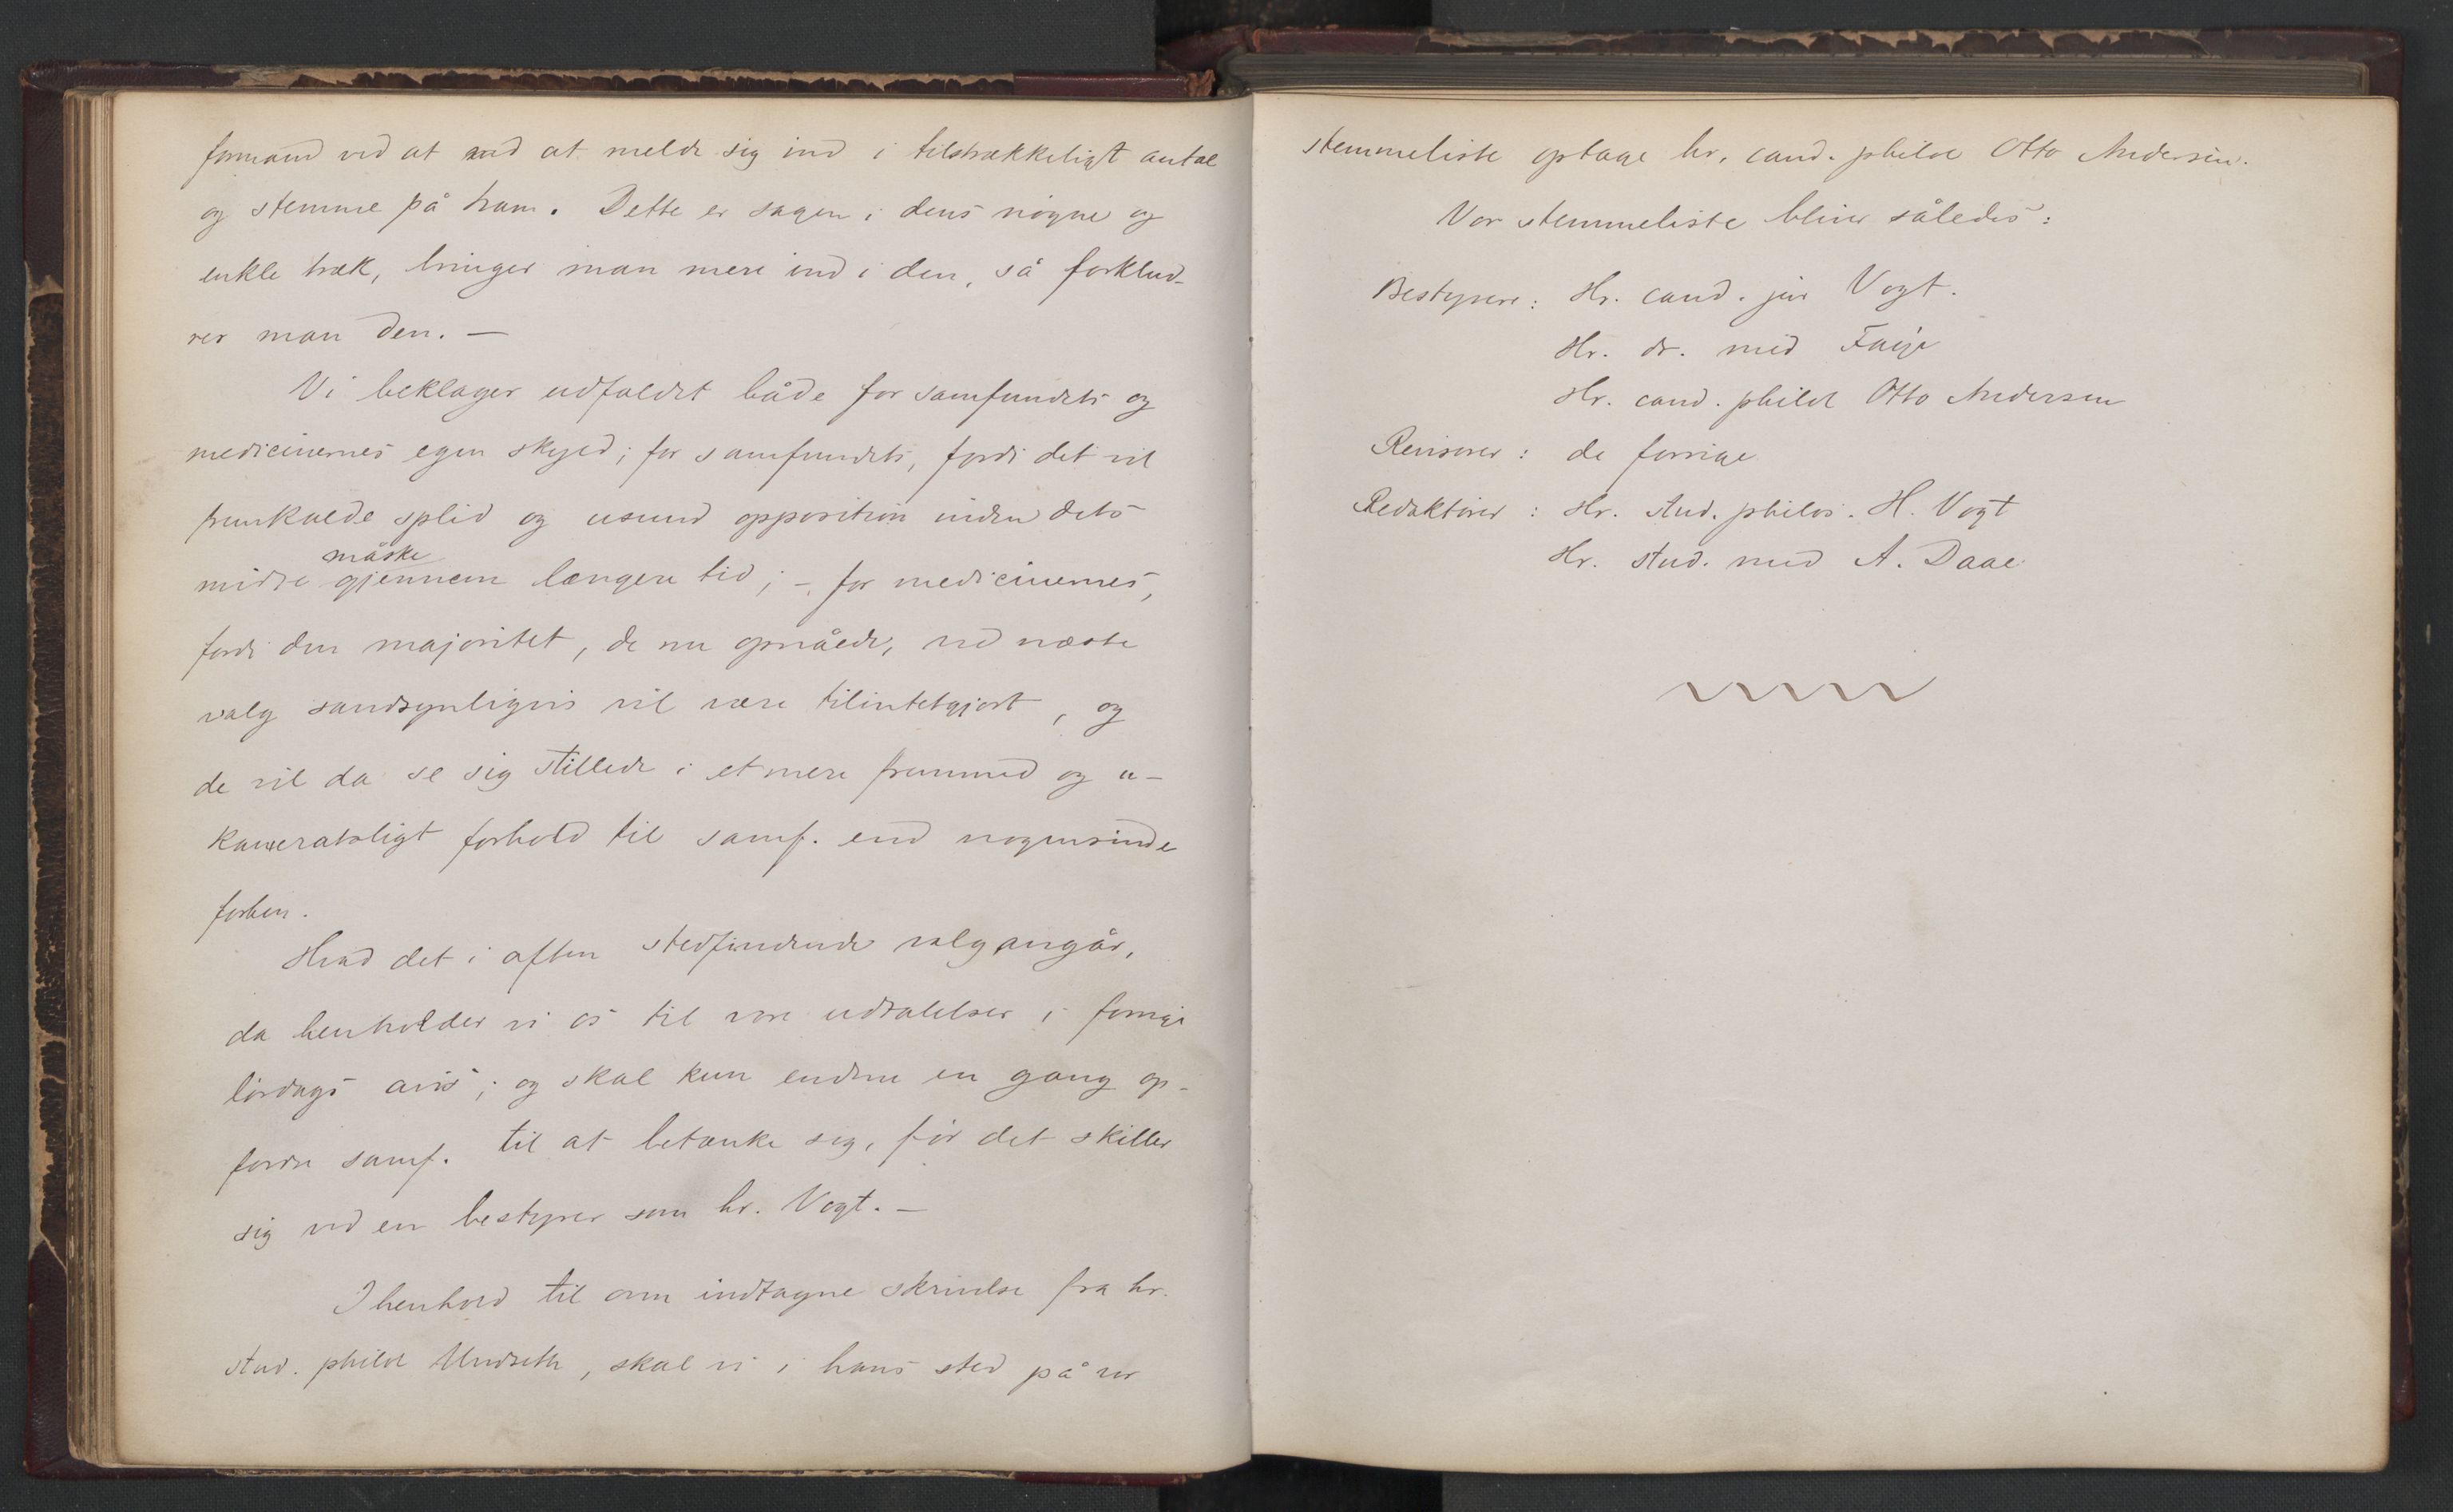 formand ved at ved at melde sig ind i tilstrækkeligt antal
og stemme på ham. Dette er sagen i dens nøgne og
enkle træk, bringer man mere ind i den, så forklud-
rer man den. —
Vi beklager udfaldet både for samfundets og
medicinernes egen skyld; for samfundets, fordi det vil
fremkalde splid og usund opposition inden dets
måske
midte gjennem længere tid; – for medicinernes,
fordi den majoritet, de nu opnåede, ved næste
valg sandsynligvis vil være tilintetgjort, og
de vil da se sig stillede i et mere fremmed og u-
kameratsligt forhold til samf. end nogensinde
forhen.
Hvad det i aften stedfindende valg angår,
da henholder vi os til vore udtalelser i forrige
lørdags avis; og skal kun endnu en gang op-
fordre samf. til at betænke sig, før det skiller
sig ved en bestyrer som hr. Vogt. —
I henhold til oven indtagne skrivelse fra hr.
stud. philol Undseth, skal vi i hans sted på vor
stemmeliste optage hr. cand. philol Otto Andersen.
Vor stemmeliste bliver således:
Bestyrere: Hr. cand. jur Vogt.
Hr. dr. med Faije
Hr. cand. philol Otto Andersen
Revisorer: de forrige
Redaktører: Hr. stud. philos. H. Vogt
Hr. stud. med A. Daae